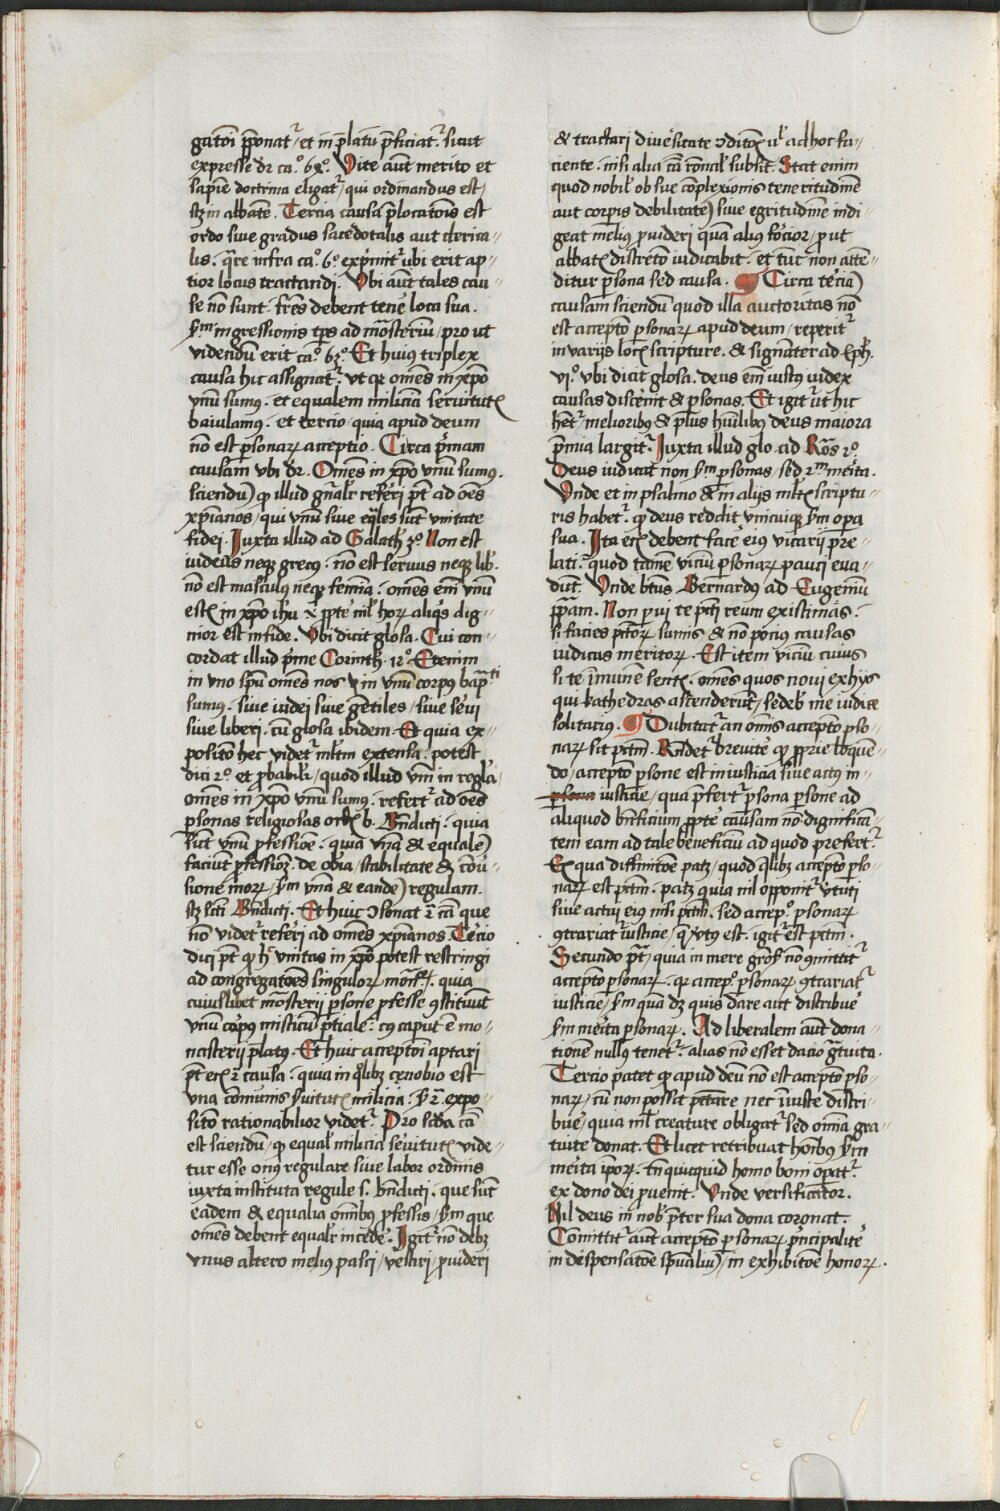 gatōi p̄ponatᷣ / et in p̄latū p̄ficiatᷣ . sicut
expresse dr̄ caº . 6xº . Vite aut̄ merito et
sapiē doctrina eligatᷣ / qui ordinandus est /
sꝫ in abbatē . Tercia causa p̄locatōis est
ordo siue gradus sac̄edotalis aut clerica-
lis . qr̄e infra caº . 6º . exp̄mitᷣ ubi erit ap-
tior locus tractandi . Vbi aut̄ tales cau-
se nō sunt . fr̄es debent tenē loca sua .
s̄m ingressionis tp̄s ad mōsteriū / pro ut
videndū erit caº . 63º . Et huius triplex
causa hic assignatᷣ . vt qꝛ om̄es in xp̄o
vnū sumꝰ . et equalem miliciā seruitutꝭ
baiulamꝰ . et tercio quia apud deum
nō est p̱sonaꝝ acceptio . Circa p̄mam
causam vbi dr̄ . Om̄es in xp̄o vnū sumꝰ .
sciendū ꝙ illud gn̄alr̄ refēri pt̄ ad oēs
xp̄ianos / qui vnū siue eq̄les sūt vnitate
fidei . Iuxta illud ad Galathꝫ 3º . Non est
iudeus neqꝫ grecꝰ . nō est seruus neqꝫ lib̄ .
nō est masculus neqꝫ femīa . om̄es em̄ vnū
estꝭ in xp̄o ih̄u
nior est in fide . Vbi dicit glosa . Cui con-
cordat illud p̄me Corinth . 12º . Etenim
in vno sp̄u om̄es nos in vnū corpꝰ bap̄ti
sumus . siue iudei siue gentiles / siue serui
siue liberi . cū glosa ibidem . Et quia ex-
positō hec videtᷣ ml̄tm extensa . potest
dici 2º . et p̱babilī / quod illud vnū in regl̄a
om̄es in xp̄o vnū sumꝰ . refertᷣ ad oēs
p̱sonas religiosas ordꝭ b . Bn̄dicti . quia
sūt vnū p̱fessiōe . quia vnā & equalē
faciūt p̱fessionꝫ . de ob̄ia / stabilitate & cōu̅-
sione moꝝ / s̄m vnā & eandē regulam .
sꝫ sc̄ti Bn̄dicti . Et huic ꝯsonat
nō videtᷣ refēri ad om̄es xp̄ianos . Tēcio
dici pt̄ ꝙ h̄ vnitas in xp̄o potest restringi
ad congregatōes singuloꝝ quia
cuiuslibet mōsterij p̱sone p̱fesse ꝯstituūt
vnū corpꝰ misticū p̱tiale . cꝰ caput ē mo-
nasterij p̄latꝰ . Et huic acceptōi aptari
pt̄ causa . quia in qͦlibꝫ cenobio est
vna cōmunis s̄uitutꝭ milicia . expo-
sitō rationabilior videtᷣ . Pro sc̄da cā
est sciendū / ꝙ equalꝭ milicia seruitutꝭ vide-
tur esse onꝰ regulare siue labor ordinis
iuxta instituta regule s . bn̄dicti . que sūt
eadem & equalia om̄ibꝰ p̱fessis / s̄m que
om̄es debent equalr̄ incedē . Igitᷣ nō debꝫ
vnus altero melius pasci / vestiri / p̱uideri
& tractari diūsitate ꝯditōꝭ ad hoc fa-
ciente . nisi alia cā rōnalꝭ subsit . Stat enim
quod nobilꝭ ob sue cōplexionis teneritudinē
aut corp̱is debilitatē siue egritudinē indi-
geat melius p̱uideri quā alius forcior / p̱ut
abbatꝭ discretō iudicabit . et tūc non attē-
ditur p̱sona sed causa . ¶ Circa terciā
causam sciendū quod illa auctoritas nō
est acceptō p̱sonaꝝ apud deum / reperitᷣ
in varijs locꝭ scripture . & signātr̄ ad Eph̄ .
vjº . vbi dicit glosa . deus em̄ iustꝰ iudex
causas discernit & p̱sonas . Et igitᷣ ut hic
hētᷣ / melioribꝰ & plus hūilibꝰ deus maiora
p̄mia largitᷣ . Iuxta illud glo . ad Ro̅s 2º .
Deus iudicat non s̄m p̱sonas / sed s̄m mērita .
Vnde et in psalmo & in alijs ml̄tꝭ scriptu-
ris habetᷣ . ꝙ deus reddit vnicuiqꝫ s̄m opa
sua . Ita etꝭ debent facē eiꝰ vicarij p̄re-
lati . quod tamē viciū p̱sonaꝝ pauci eua-
dūt . Vnde bt̄us Bernardus ad Eugeniū
p̄pam . Non
si facies pctōꝝ sumis & nō potiꝰ causas
iudicas meritoꝝ . Est item viciū cuius
si te īmunē sentꝭ . om̄es quos noui ex hijs
qui kathedras ascenderūt / sedebꝭ me iudice
solitarius . ¶ Dubitatᷣ an om̄is acceptō p̱so-
naꝝ sit pctm̄ . Rn̄detᷣ breuitē ꝙ p̱prie loquen-
do / acceptō p̱sone est iniusticia siue actꝰ in-
p̱sona iusticie / qua p̄fertᷣ p̱sona p̱sone ad
aliquod bn̄ficium p̱ptē causam nō dignificā-
tem eam ad tale beneficiū ad quod prefertᷣ .
Ex qua diffinitōe patꝫ / quod qͣlibꝫ acceptō p̱so-
naꝝ est pctm̄ . patꝫ quia nil opponitᷣ ūtuti
siue actui eius nisi pctm̄ . sed accepᵒ p̱sonaꝝ
ꝯtrariatᷣ iusticie / q̄ ūtꝰ est . igitᷣ est pctm̄ .
Secundo pꝫ / quia in mere grōsꝭ nō ꝯmittitᷣ
acceptō p̱sonaꝝ . qꝛ accepᵒ p̱sonaꝝ ꝯtrariatᷣ
iusticie / s̄m quā dꝫ quis dare aut distribuē
s̄m merita p̱sonaꝝ . Ad liberalem aut̄ dona-
tionē nullꝰ tenetᷣ . alias nō esset dacio gͣtuita .
Tercio patet ꝙ apud deū nō est acceptō p̱so-
naꝝ / cū non possit pctare nec iniuste distri-
buē / quia nulꝉ creature obligatᷣ sed om̄ia gra-
tuite donat . Et licet retribuat hoībꝰ s̄m
merita ip̄oꝝ . tn̄ quicquid homo boni opatᷣ .
ex dono dei p̱uenit . Vnde versificator .
Nil deus in nobꝭ p̄ter sua dona coronat .
Cōmittitᷣ aut̄ acceptō p̱sonaꝝ p̱ncipalitē
in dispensatōe sp̄ualiū / in exhibitōe honoꝝ .